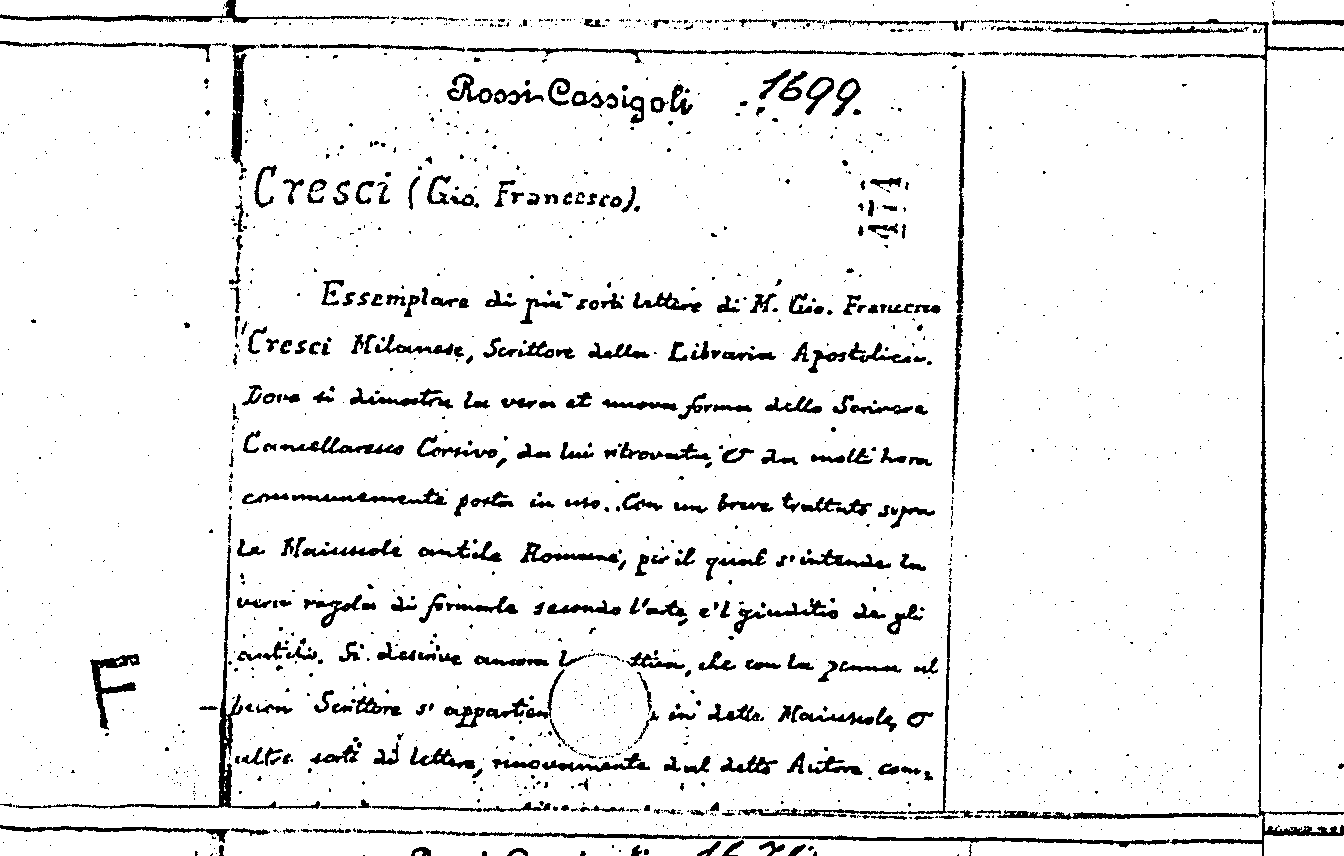 Rossi-Cassigoli 1699.
Cresci (Gio. Francesco).
474
Essemplare di più sorti lettere di M. Gio. Francesco
Cresci Milanese, Scrittore della Libraria Apostolica.
Dove si dimostra la vera et nuova forma dello Scrivere
Cancellaresco Corsivo, da lui ritrovata, & da molti hora
communemente posta in uso. Con un breve trattato sopra
le Maiuscole antiche Romane, per il qual s'intende la
vera regola di formarle secondo l'arte, e'l giuditio de gli
antichi. Si descrive ancora che con la penna al
buon Scrittore s' in dette Maiuscole, &
altre sorti di lettere, nuovamente dal detto Autore com=
F